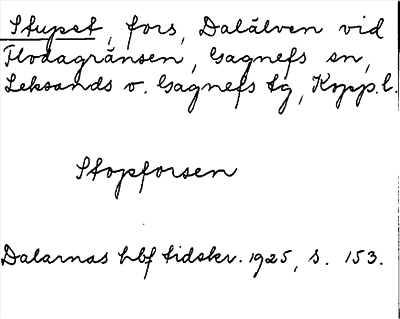 Stupet, fors, Dalälven vid
Flodagränsen, Gagnefs sn,
Leksands o. Gagnefs tg, Kopp.l.
Stopforsen
Dalarnas hbf tidskr. 1925, s. 153.